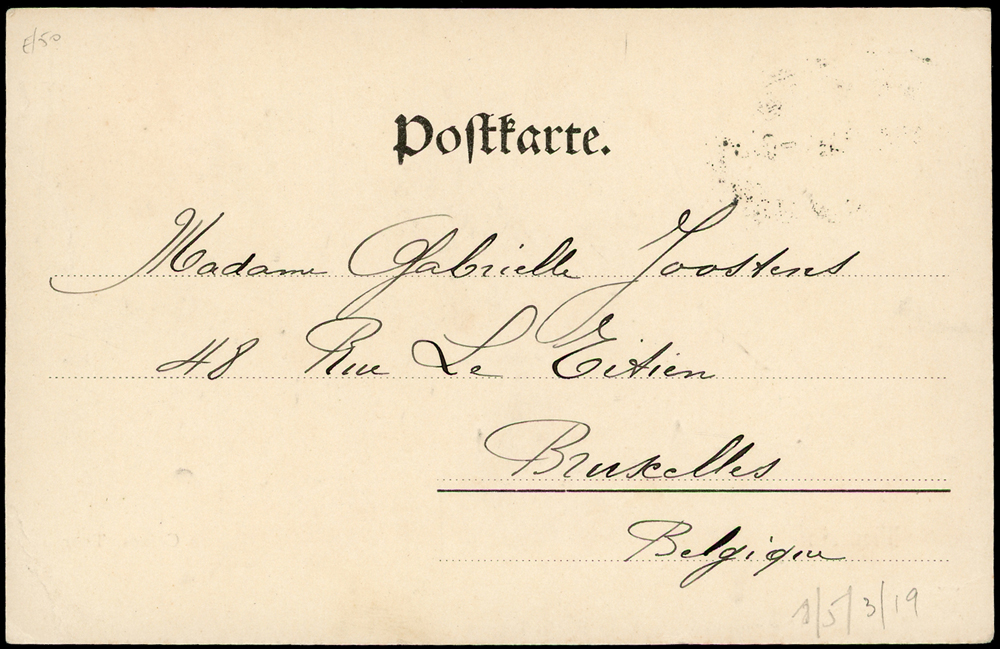 E/50
Postkarte.
Madame Gabrielle Joostens
48 Rue Le Titien
Bruxelles
Belgique
1/5/3/19